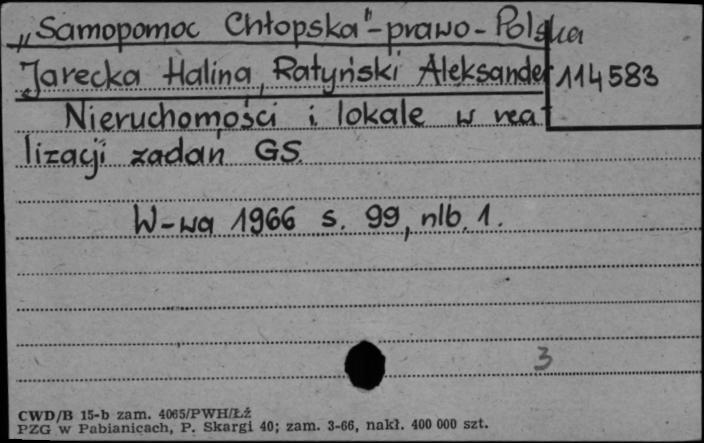 „Samopomoc Chłopska"-prawo-Polska
Jarecka Halina, Ratyński Aleksander 114583
Nieruchomości i lokale w rea-
lizacji zadań GS.
W-wa 1966 s. 99, nlb. 1.
3
CWD/B 15-b zam. 4065/PWH/Łź
PZG w Pabianicach, P. Skargi 40; zam. 3-66, nakł. 400 000 szt.